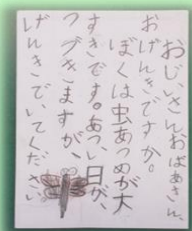 おじいさんおばあさん、
おげんきですか。
ぼくは虫あつめが大
すきです。あつい日が、
つづきますが、
げんきでいてください